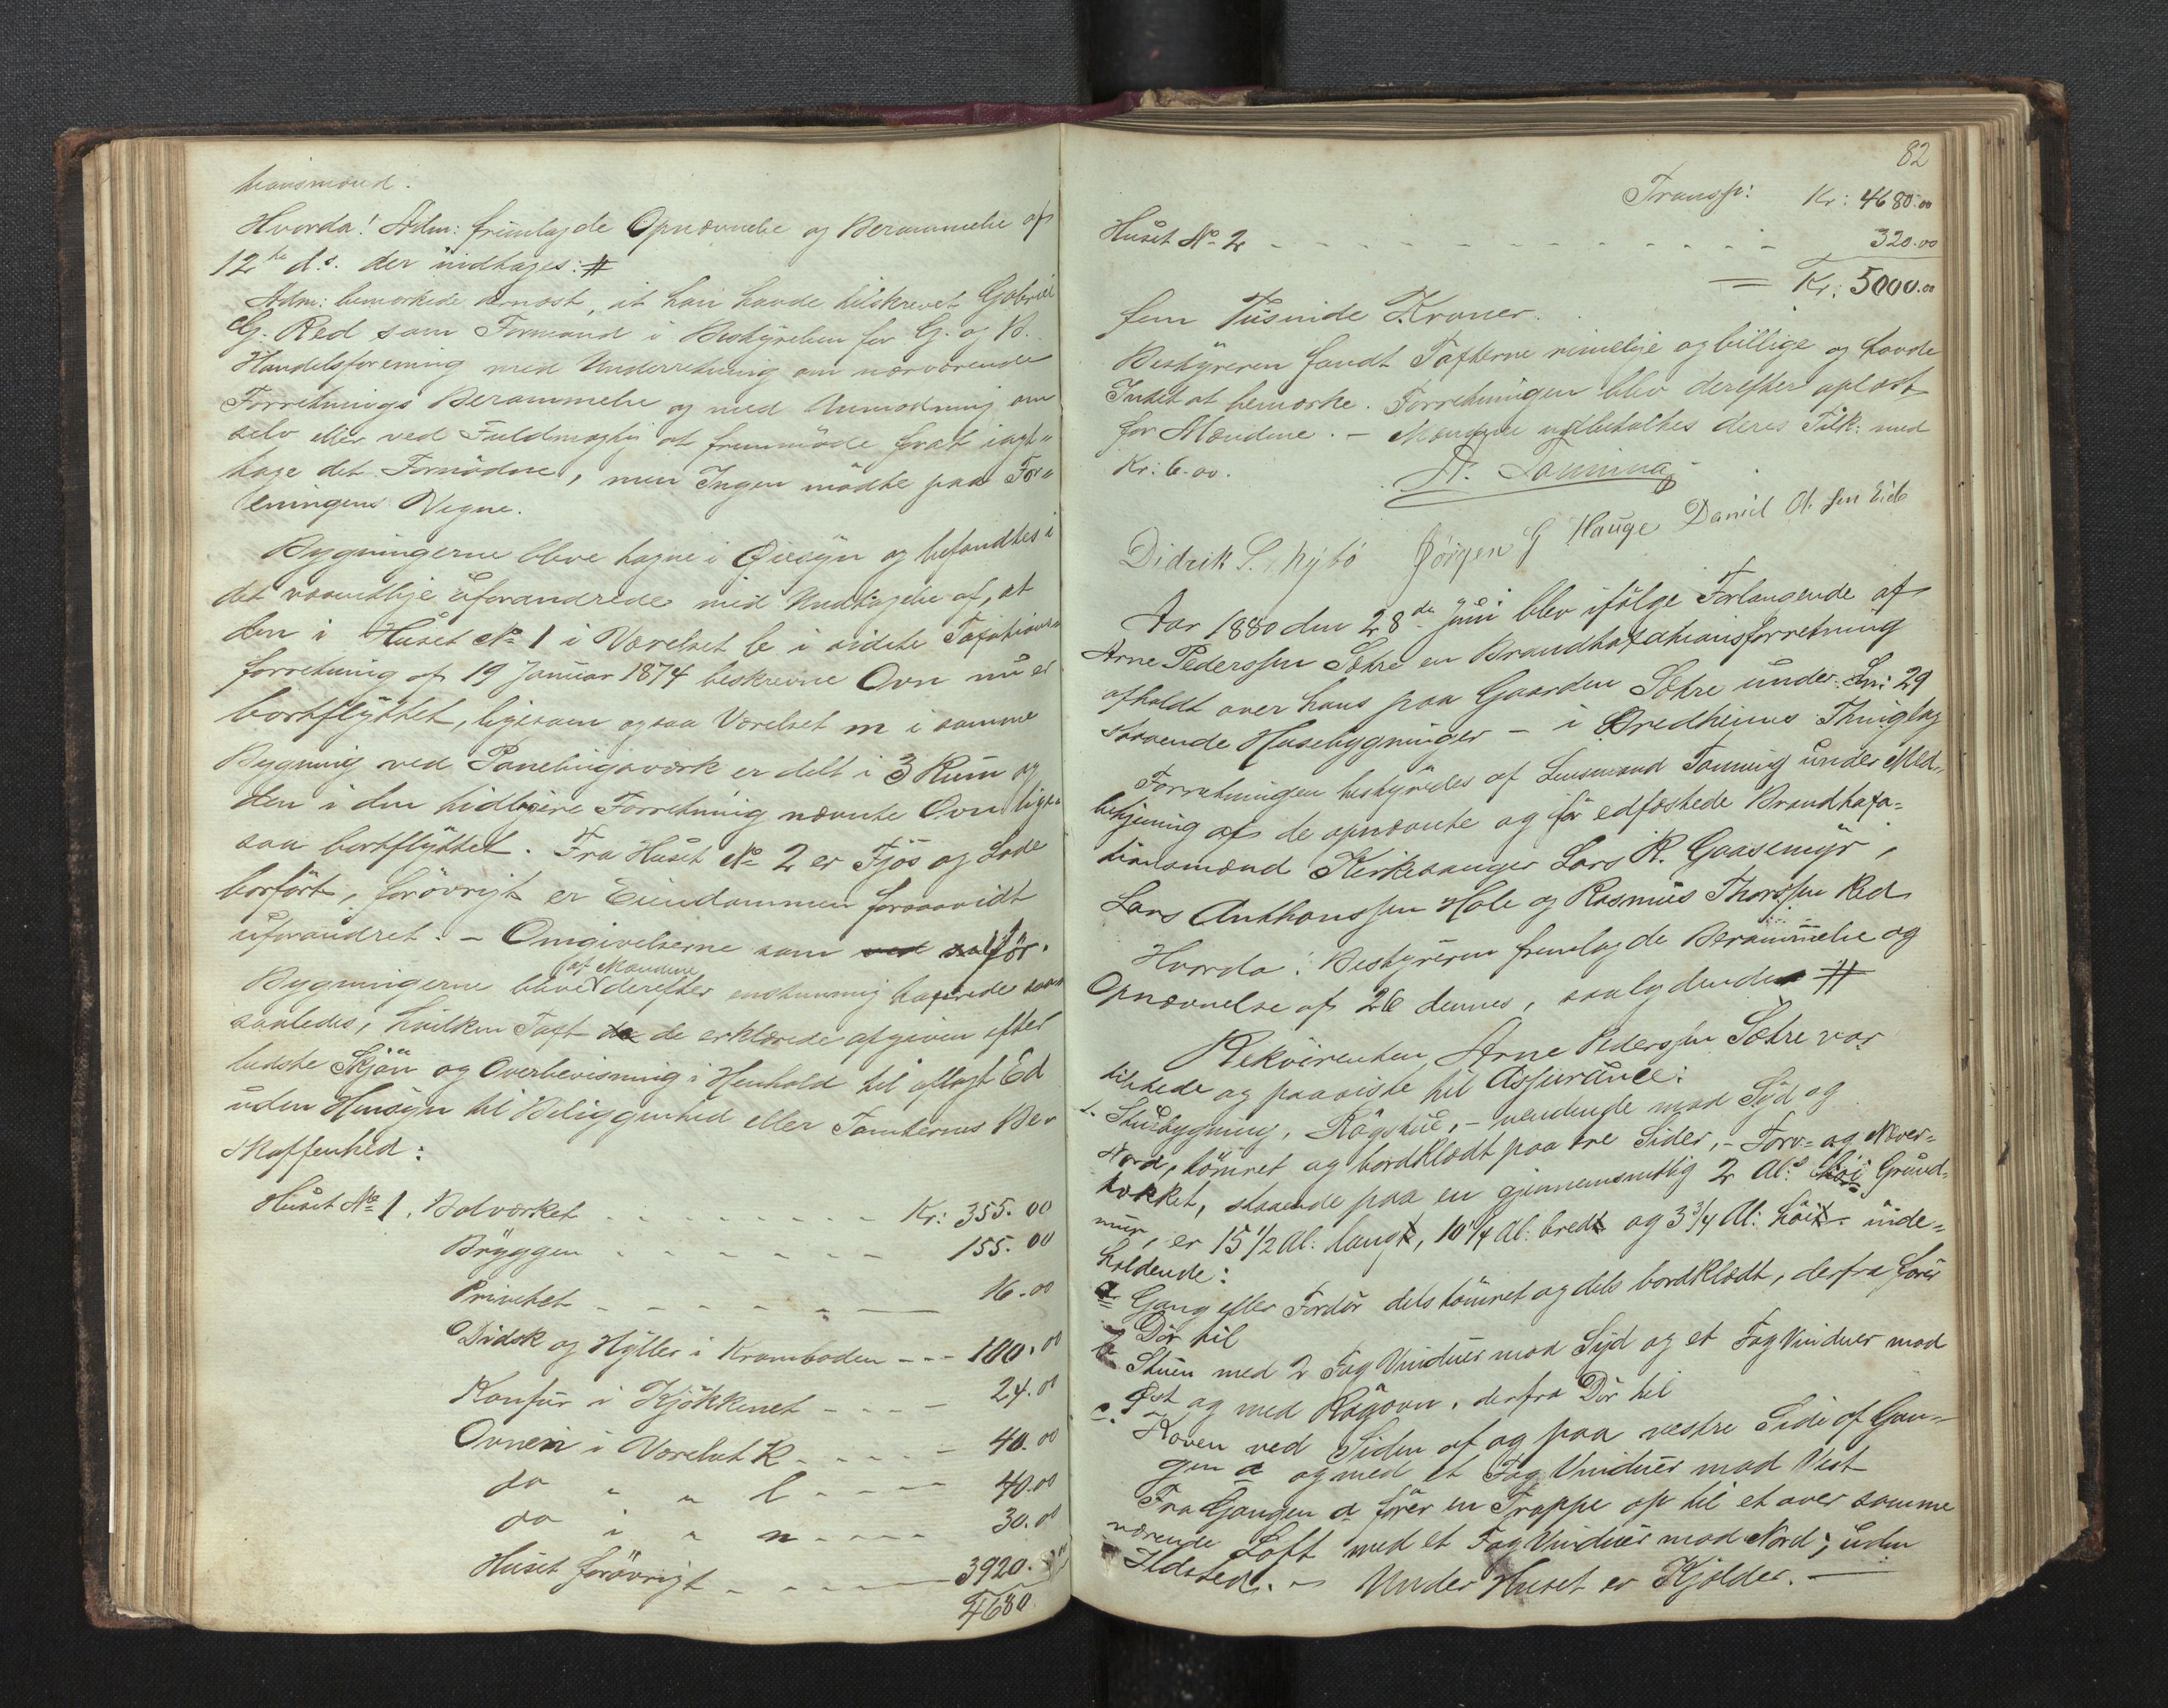 tionsmænd.
Hvorda! Adm: fremlagde Opnævnelse og Berammelse af
12te d.s. der indtages: #
Adm: bemærkede dernæst, at han havde tilskrevet Gabriel
G. Red som Formand i Bestyrelsen for G. og B.
Handelsforening med Underretning om nærværende
Forretnings Berammelse og med Anmodning om
selv eller ved Fuldmægtig at fremmøde forat iagt„
tage det Fornødne, men Ingen mødte paa For„
eningens Vegne.
Bygningerne bleve tagne i Øiesyn og befandtes i
det væsentlige uforandrede med Undtagelse af, at
den i Huset No 1 i Værelset e i sidste Taxations„
forretning af 19 Januar 1874 beskrevne Ovn nu er
bortflyttet, ligesom ogsaa Værelset m i samme
Bygning ved Panelingsværk er delt i 3 Rum og
den i den tidligere Forretning nævnte Ovn lige„
saa bortflyttet. Fra Huset No 2 er Fjøs og Lade
borført, forøvrigt er Eiendommen forsaavidt
uforandret. – Omgivelserne som ved før.
af Mændene
Bygningerne bleve derefter enstemmig taxerede saa
saaledes, hvilken Taxt de de erklærede afgiven efter
bedste Skjøn og Overbevisning i Henhold til aflagt Ed
uden Hensyn til Beliggenhed eller Tomternes Be„
skaffenhed:
Huset No 1. Bolværket - - - - - - - - Kr: 355.00
Bryggen - - - - - - - 155.00
Privetet - - - - - - 16.00
Didsk og Hyller i Kramboden - - - 100.00
Komfur i Kjøkkenet - - - - 24.00
Ovnen i Værelset k - - - - - 40.00
do " " l - - - - 40.00
do i " n - - - - 30.00
Huset forøvrigt - - - - - 3920.00
4680.
82
Transp: Kr: 4680.00
Huset No 2 - - - - - - - - - - - - - - 320.00
= Kr: 5000.00
fem Tusinde Kroner.
Bestyreren fandt Taxterne rimelige og billige og havde
Intet at bemærke. Forretningen blev derefter oplæst
for Mændene. – Mændene udbetaltes deres Tilk: med
Kr: 6.00.
A. Tonning
Didrik S. Nybø Jørgen G Hauge Daniel A. sen Eide
Aar 1880 den 28de Juni blev ifølge Forlangende af
Arne Pederssen Sætre en Brandtaxationsforretning
afholdt over hans paa Gaarden Sætre under Lni 29
staaende Husebygninger – i Bredheims Thinglag
Forretningen bestyredes af Lensmand Tonning under Med„
betjening af de opnævnte og før edfæstede Brandtaxa=
tionsmænd Kirkesanger Lars R. Gaasemyr,
Lars Anthonssen Hole og Rasmus Thorssen Red
Hvorda! Bestyreren fremlagde Berammelse og
Opnævnelse af 26 dennes, saalydende #
Rekvirenten Arne Pederssen Sætre var
tilstede og paaviste til Assurance:
1. Stuebygning, Røgstue, – vendende mod Syd og
Nord, tømret og bordklædt paa tre Sider, – Torv= og Næver=
tækket, staaende paa en gjennemsnitlig 2 Al: høi Grund„
mur, er 15 1/2 Al: langt, 10 1/4 Al: bredt og 3 3/4 Al: høit – inde=
holdende:
a Gang eller Fordør dels tømret og dels bordklædt, derfra fører
Dør til
b Stuen med 2 Fag Vinduer mod Syd og et Fag Vinduer mod
Øst og med Røgovn, derfra Dør til
c. Koven ved Siden af og paa vestre Side af Gan„
gen a og med et Fag Vinduer mod Vest
Fra Gangen a fører en Trappe op til et over samme
værende Loft med et Fag Vinduer mod Nord; uden
Ildsted. – Under Huset er Kjelder. –